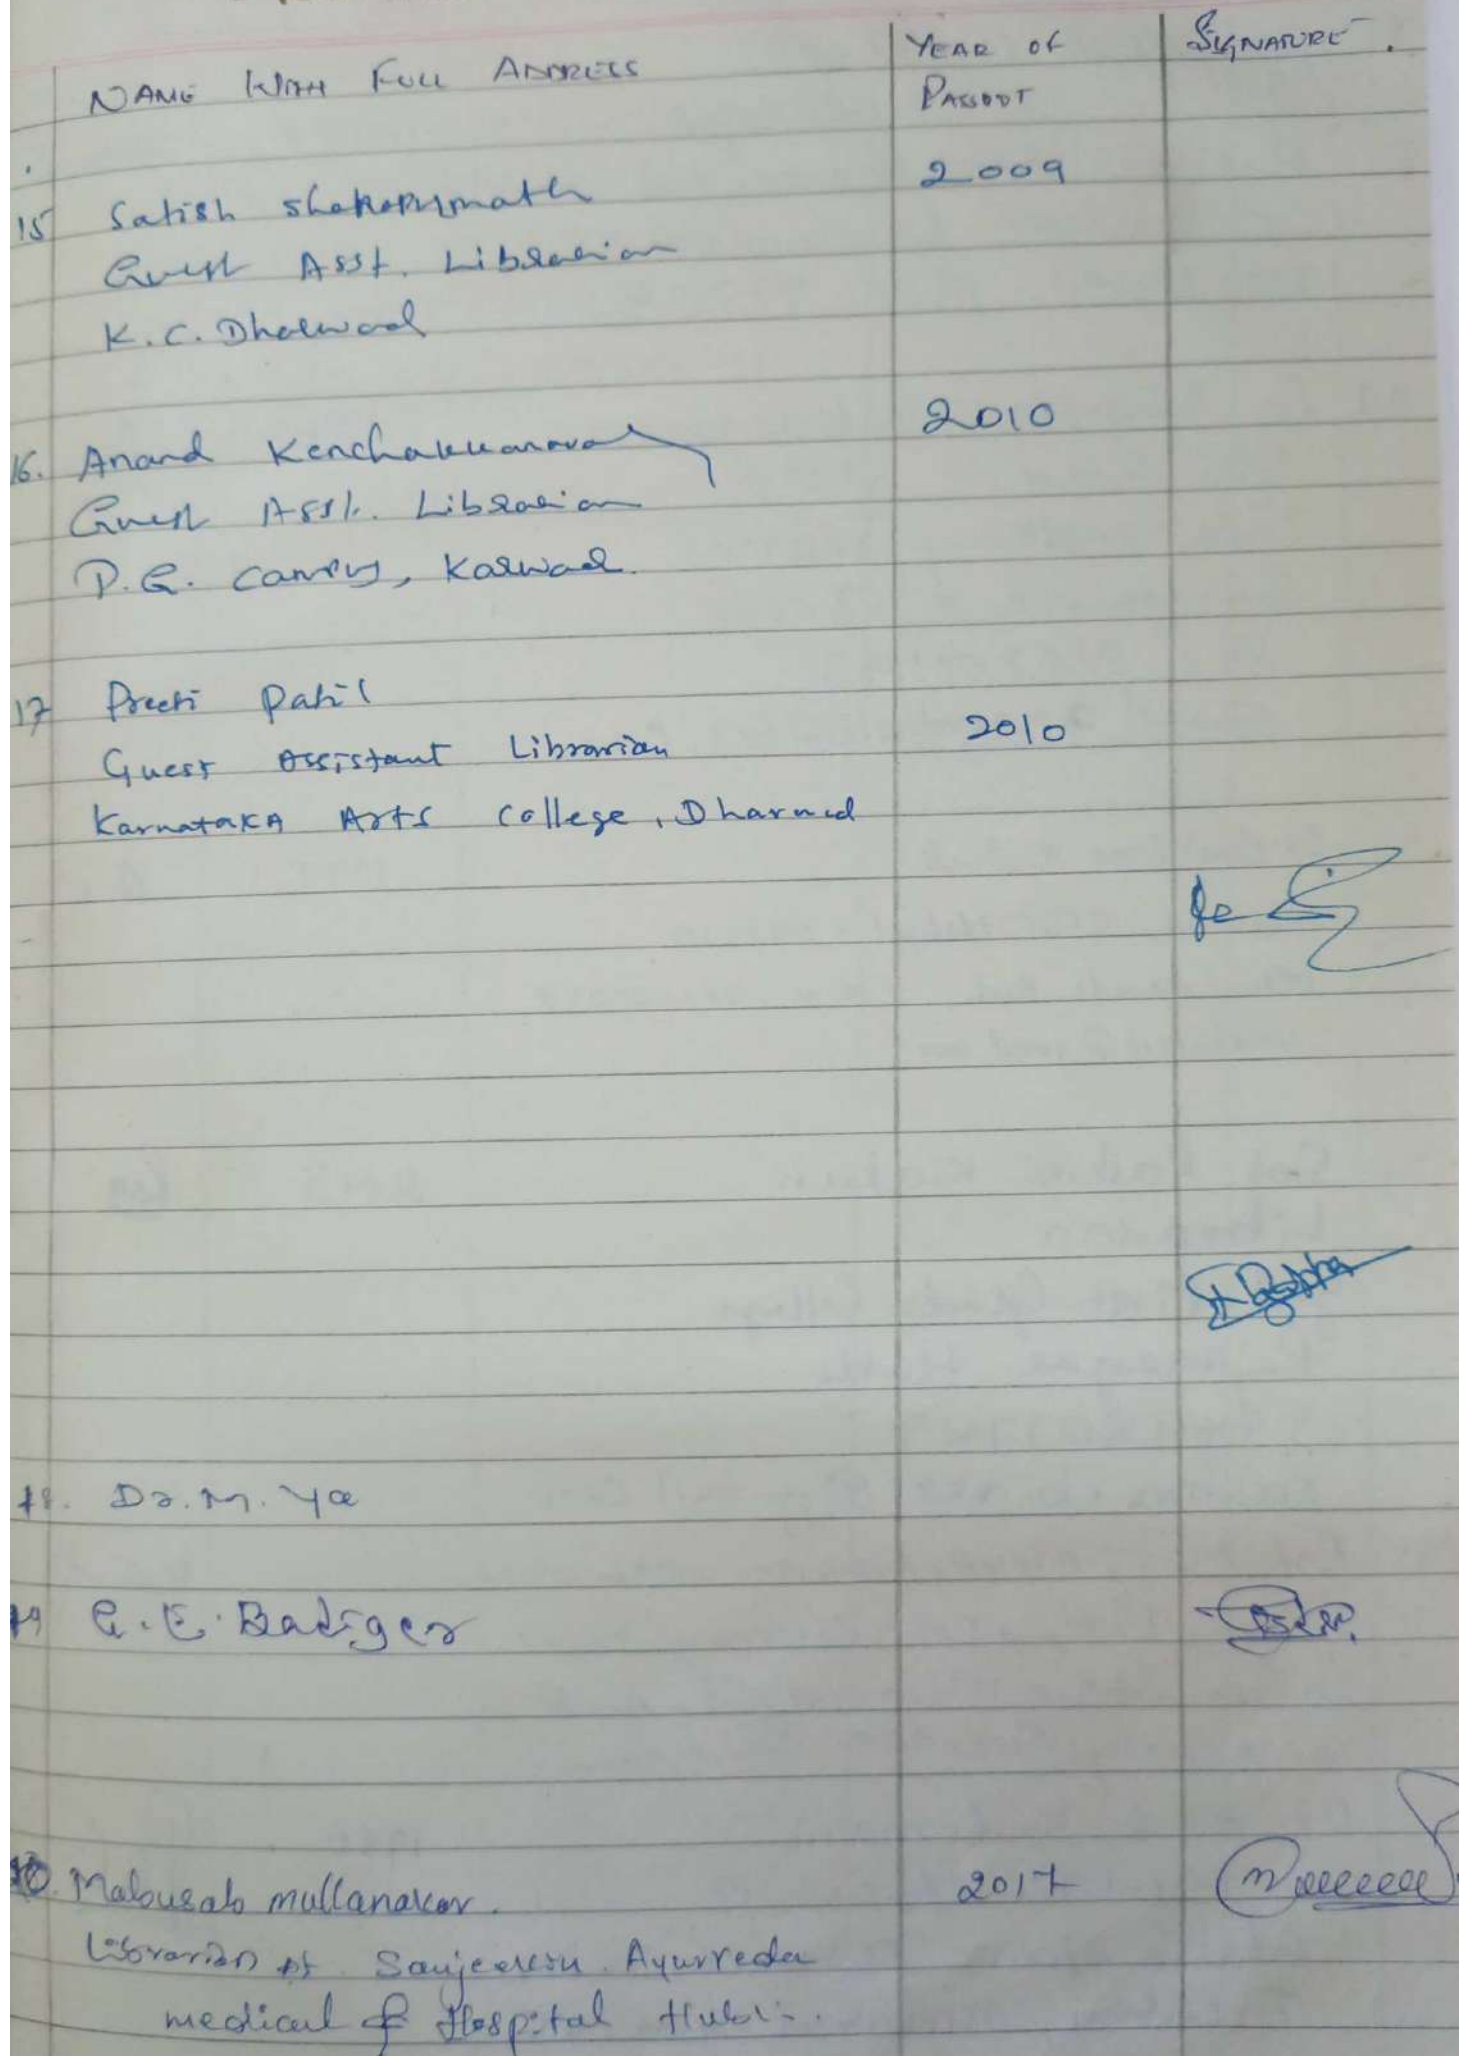 NAME WITH FULL ADDRESS
YEAR OF
PASSOUT
SIGNATURE.
2009
15 Satish
Guest Asst. Librarian
K.C. Dharwad
2010
16. Anand Kenchakkanavar
Guest Asst. Librarian
P.G. Campus, Karwar.
17 Preeti Patil
Guest Assistant Librarian
2010
Karnataka Arts College, Dharwad
18. Dr. M. Ya
19 G. E. Badiger
20. Mabusab mullanavar.
2017
Librarian at Sanjeevini Ayurveda
medical & Hospital Hubli.